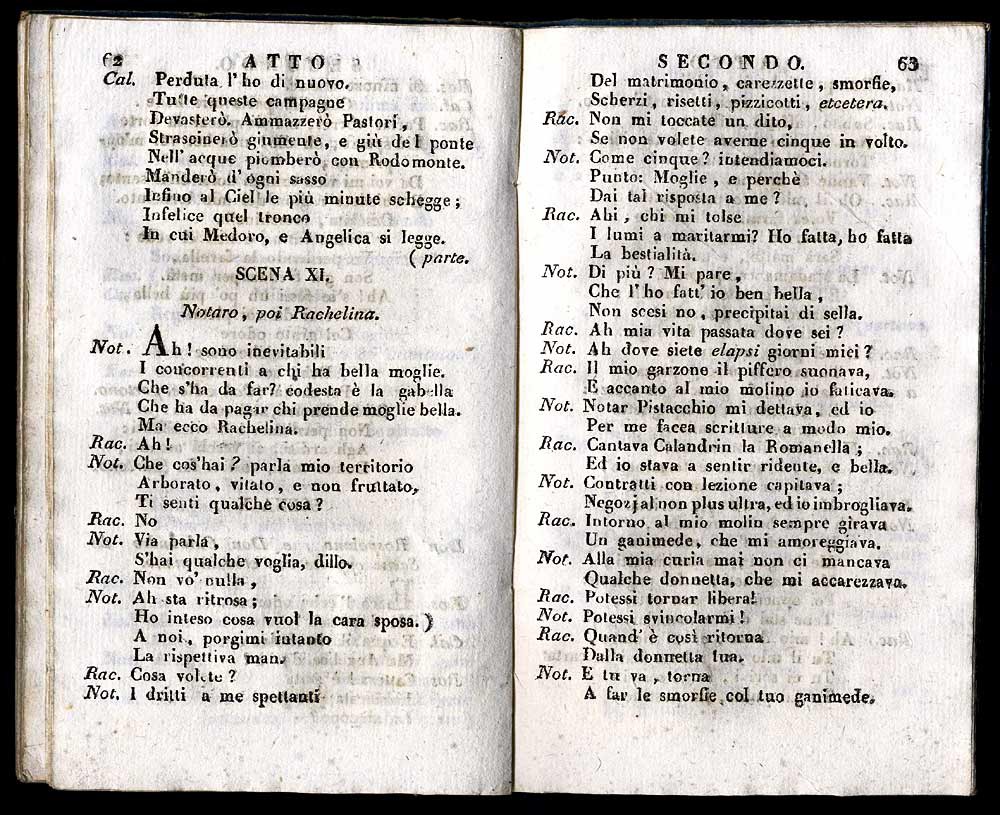 62 ATTO
Cal. Perduta l'ho di nuovo.
Tutte queste campagne
Devasterò. Ammazzerò Pastori,
Strascinerò giumente, e giù del ponte
Nell' acque piomberò con Rodomonte.
Manderò d' ogni sasso
Infino al Ciel le più minute schegge;
Infelice quel tronco
In cui Medoro, e Angelica si legge.
(parte.
SCENA XI.
Notaro, poi Rachelina.
Not. Ah! sono inevitabili
I concorrenti a chi ha bella moglie.
Che s'ha da far? codesta è la gabella
Che ha da pagar chi prende moglie bella.
Ma ecco Rachelina.
Rac. Ah!
Not. Che cos'hai? parla mio territorio
Arborato, vitato, e non fruttato,
Ti senti qualche cosa?
Rac. No
Not. Via parla,
S'hai qualche voglia, dillo.
Rac. Non vo' nulla,
Not. Ah sta ritrosa;
Ho inteso cosa vuol la cara sposa.)
A noi, porgimi intanto
La rispettiva man.
Rac. Cosa volete?
Not. I dritti a me spettanti
SECONDO. 63
Del matrimonio, carezzette, smorfie,
Scherzi, risetti, pizzicotti, etcetera.
Rac. Non mi toccate un dito,
Se non volete averne cinque in volto.
Not. Come cinque? intendiamoci.
Punto: Moglie, e perchè
Dai tal risposta a me?
Rac. Ahi, chi mi tolse
I lumi a maritarmi? Ho fatta, ho fatta
La bestialità.
Not. Di più? Mi pare,
Che l'ho fatt' io ben bella,
Non scesi no, precipitai di sella.
Rac. Ah mia vita passata dove sei?
Not. Ah dove siete elapsi giorni miei?
Rac. Il mio garzone il piffero suonava,
E accanto al mio molino io faticava.
Not. Notar Pistacchio mi dettava, ed io
Per me facea scritture a modo mio.
Rac. Cantava Calandrin la Romanella;
Ed io stava a sentir ridente, e bella.
Not. Contratti con lezione capitava;
Negozj al non plus ultra, ed io imbrogliava.
Rac. Intorno al mio molin sempre girava
Un ganimede, che mi amoreggiava.
Not. Alla mia curia mai non ci mancava
Qualche donnetta, che mi accarezzava.
Rac. Potessi tornar libera!
Not. Potessi svincolarmi!
Rac. Quand' è così ritorna
Dalla donnetta tua.
Not. E tu va, torna
A far le smorfie col tuo ganimede.